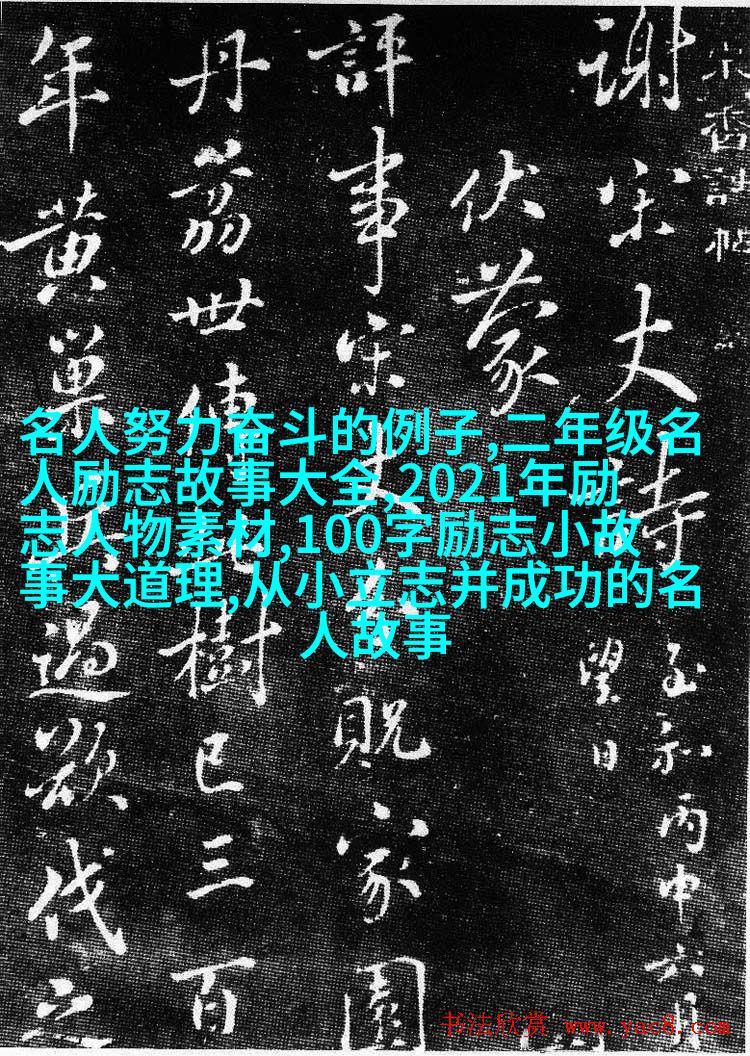 謝宋丈詩
至和丙申六月
望日
伏蒙
評事宋丈貺家園
丹荔世傳此樹已三百
年黄巢兵過欲伐之
名人努力奋斗的例子,二年级名
人励志故事大全,2021年励
志人物素材,100字励志小故
事大道理,从小立志并成功的名
人故事
书法欣赏 www.yac8.com